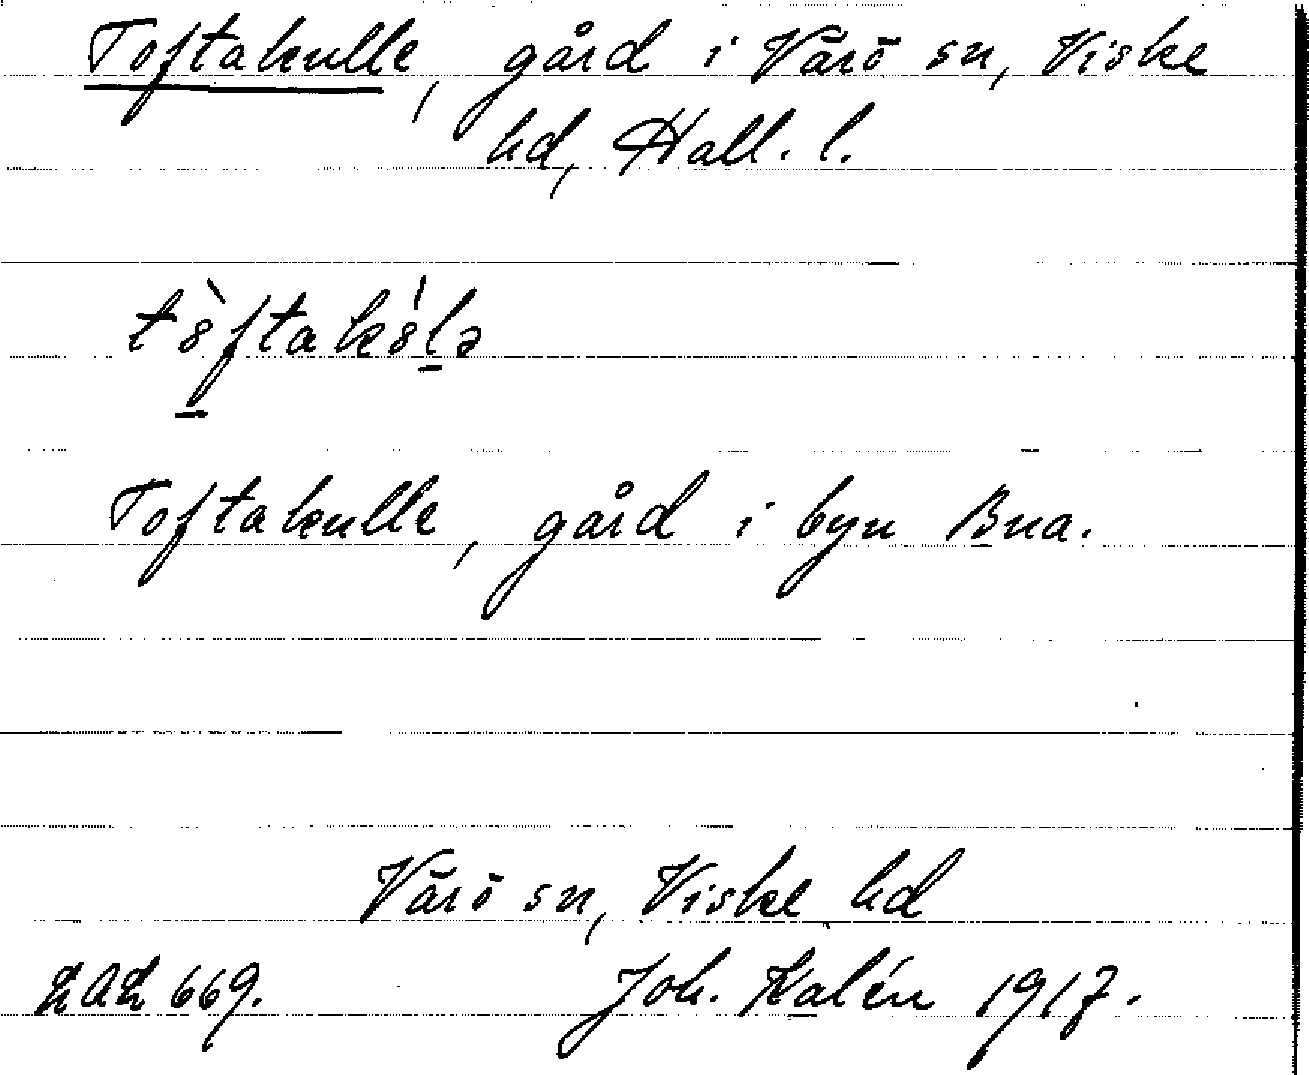 Toftakulle, gård i Värö sn, Viske
hd, Hall. l.
Toftakulle, gård i byn Bua.
Värö sn, Viske hd
669. Joh. Kalén 1917.